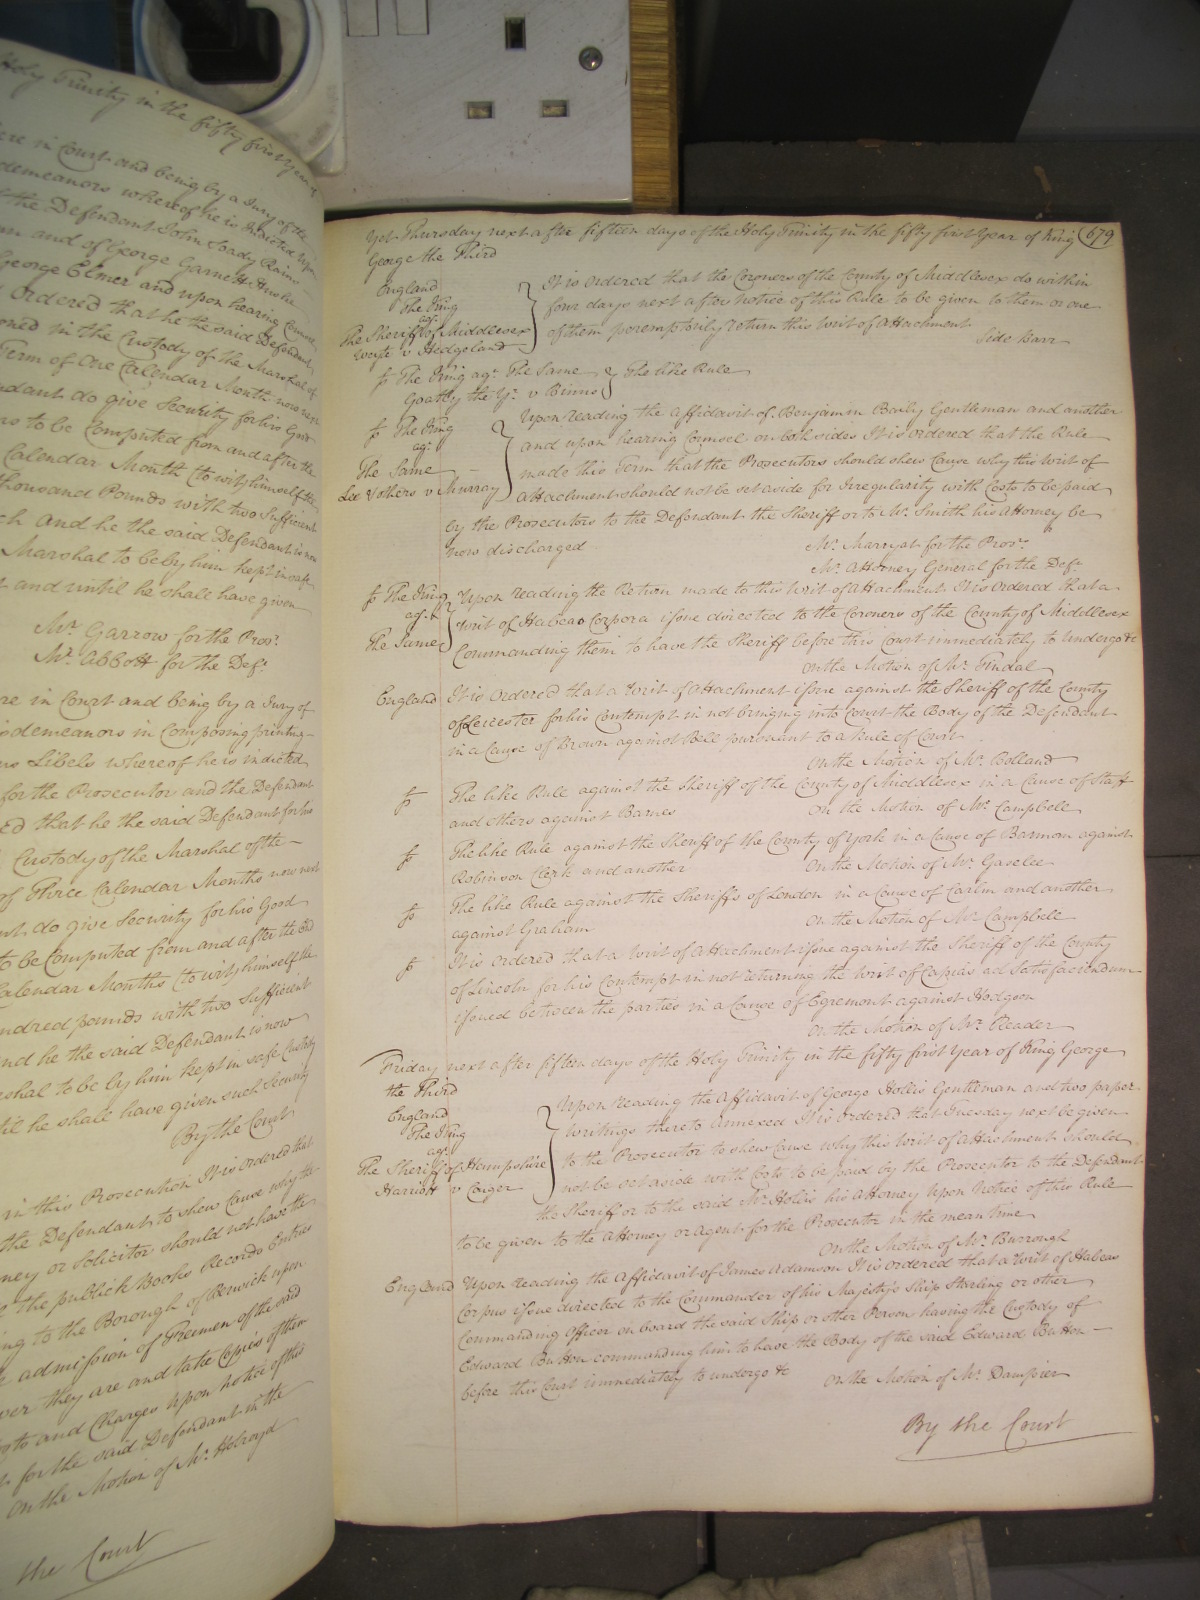 Holy Trinity in the fifty first Year of
ere in Court and being by a Jury of the
demeanors whereof he is Indicted Upon
f the Defendant John
an and of George Garnett
George Elmer and upon hearing Counsel
Ordered that he the said Defendant
oned in the Custody of the Marshal of
Term of One Calendar Month now next
ndant do give Security for his Good
rs to be Computed from and after the
Calendar Month (to wit) himself the
Thousand Pounds with two Sufficient
ch and he the said Defendant is now
Marshal to be by him kept in safe
t and until he shall have given
Mr. Garrow for the Pror.
Mr. Abbott for the Deft.
re in Court and being by a Jury of
isdemeanors in Composing printing
us Libels whereof he is indicted
for the Prosecutor and the Defendant
ed that he the said Defendant for his
Custody of the Marshal of the
of Three Calendar Months now next
nt do give Security for his Good
to be Computed from and after the
Calendar Months (to wit) himself the
ndred pounds with two Sufficient
nd he the said Defendant is now
rshal to be by him kept in safe Custody
til he shall have given such Security
By the Court
in this Prosecution It is Ordered that
the Defendant to shew Cause why the
ney or Solicitor should not have the
the publick Books Records Entries
ing to the Borough of Berwick upon
e admission of Freemen of the said
ver they are and take Copies of them
osts and Charges Upon Notice of this
t for the said Defendant in the
On the Motion of Mr. Holroyd
the Court
Yet Thursday next after fifteen days of the Holy Trinity in the fifty first Year of King 679
George the Third
England
The King
agt.
The Sheriff of Middlesex
v Hedgeland
It is Ordered that the Coroners of the County of Middlesex do within
four days next after notice of this Rule to be given to them or one
of them peremptorily return this Writ of Attachment
Side Barr
fs The King agt. The Same
Goatley the Yr. v Binns
The like Rule
fs The King
agt.
The Same
Lee & others v Murray
Upon reading the Affidavit of Benjamin Baily Gentleman and another
and upon hearing Counsel on both sides It is Ordered that the Rule
made this Term that the Prosecutors should shew Cause why this Writ of
Attachment should not be set aside for Irregularity with Costs to be paid
by the Prosecutors to the Defendant the Sheriff or to Mr. Smith his Attorney be
now discharged
Mr. Marryat for the Pror.
Mr. Attorney General for the Deft.
fs The King
agt.
The Same
Upon reading the Return made to this Writ of Attachment It is Ordered that a
Writ of Habeas Corpora issue directed to the Coroners of the County of Middlesex
Commanding them to have the Sheriff before this Court immediately to undergo &c
On the Motion of Mr. Tindal
England It is Ordered that a Writ of Attachment issue against the Sheriff of the County
of Leicester for his Contempt in not bringing into Court the Body of the Defendant
in a Cause of Brown against Bell pursuant to a Rule of Court
On the Motion of Mr. Bolland
fs The like Rule against the Sheriff of the County of Middlesex in a Cause of Staff
and others against Barnes On the Motion of Mr. Campbell
fs The like Rule against the Sheriff of the County of York in a Cause of Barman against
Robinson Clerk and another On the Motion of Mr. Gaselee
fs The like Rule against the Sheriffs of London in a Cause of Carlin and another
against Graham On the Motion of Mr. Campbell
fs It is Ordered that a Writ of Attachment issue against the Sheriff of the County
of Lincoln for his Contempt in not returning the Writ of Capias ad Satisfaciendum
issued between the parties in a Cause of Egremont against Hodgson
On the Motion of Mr. Reader
Friday next after fifteen days of the Holy Trinity in the fifty first Year of King George
the Third
England
The King
agt.
The Sheriff of Hampshire
Harriott v Conger
Upon reading the Affidavit of George Hollis Gentleman and two paper
Writings thereto annexed It is Ordered that Tuesday next be given
to the Prosecutor to shew Cause why this Writ of Attachment should
not be set aside with Costs to be paid by the Prosecutor to the Defendant
the Sheriff or to the said Mr. Hollis his Attorney Upon Notice of this Rule
to be given to the Attorney or Agent for the Prosecutor in the mean time
On the Motion of Mr. Burrough
England Upon reading the Affidavit of James Adamson It is Ordered that a Writ of Habeas
Corpus issue directed to the Commander of his Majesty's Ship Starling or other
Commanding Officer on board the said Ship or other Person having the Custody of
Edward Button commanding him to have the Body of the said Edward Button
before this Court immediately to undergo &c On the Motion of Mr. Dampier
By the Court